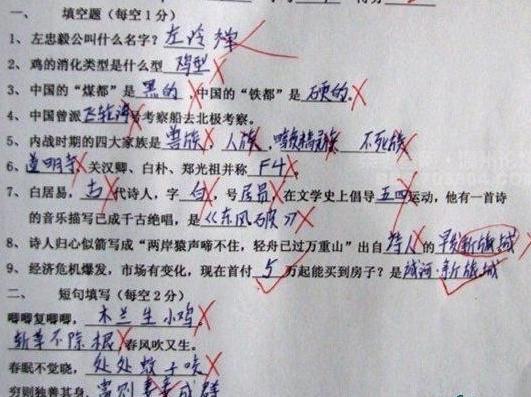 一、 填空题（每空1分）
1、左忠毅公叫什么名字？左冷禅
2、鸡的消化类型是什么型 鸡型
3、中国的“煤都”是 黑的 ，中国的“铁都”是 硬的。
4、中国曾派飞轮海号考察船去北极考察。
5、内战时期的四大家族是 兽族、人族、暗夜精灵族 不死族
6、道明寺、关汉卿、白朴、郑光祖并称 F4。
7、白居易，古代诗人，字白，号居易，在文学史上倡导五四运动，他有一首诗
的音乐描写已成千古绝唱，是《东风破》
8、诗人归心似箭写成“两岸猿声啼不住，轻舟已过万重山”出自诗人的早发新旅城
9、经济危机爆发，市场有变化，现在首付 5 万起能买到房子？是 城河·新旅城
二、 短句填写（每空2分）
唧唧复唧唧，木兰生小鸡。
斩草不除根，春风吹又生。
春眠不觉晓，处处蚊子咬
穷则独善其身，富则妻妾成群